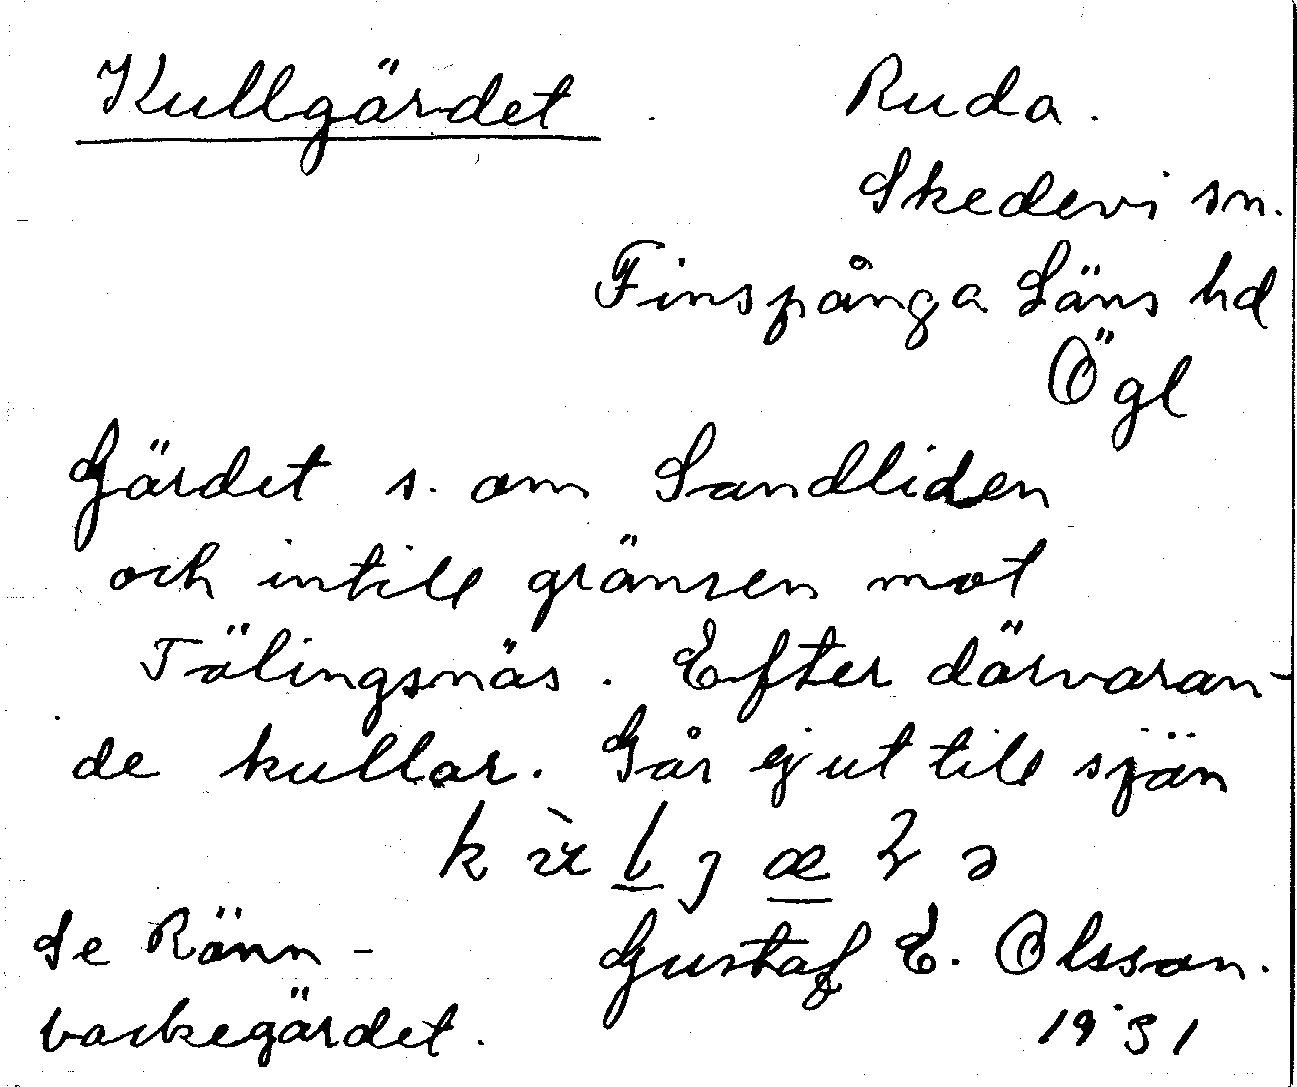 Kullgärdet. Ruda.
Skedevi sn.
Finspånga Läns hd
Ögl
Gärdet s. om Sandliden
och intill gränsen mot
Tälingsnäs. Efter därvaran-
de kullar. Går ej ut till sjön
Se Rönn- Gustaf E. Olsson.
backegärdet. 1931